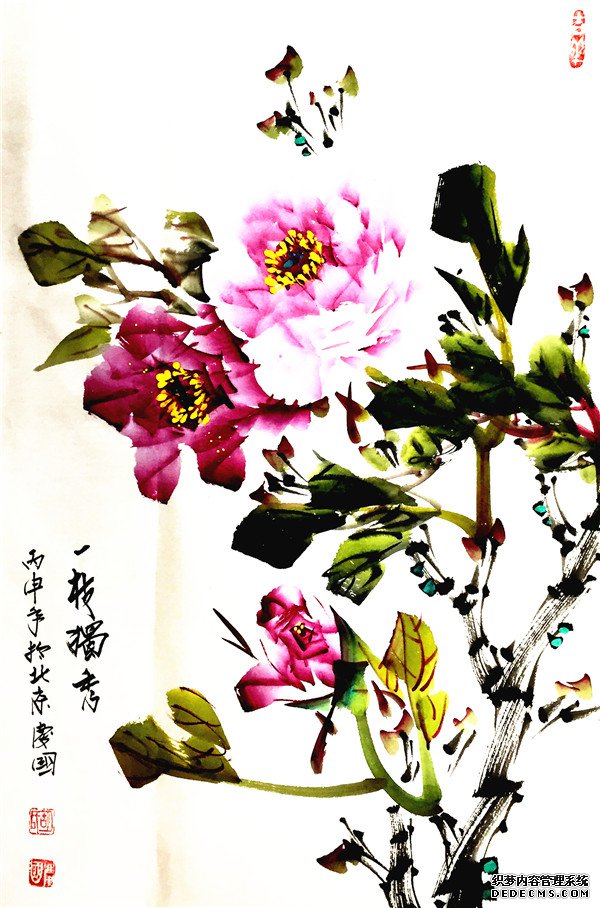 一枝獨秀
丙申年於北京慶國
织梦内容管理系统
DEDECMS.COM